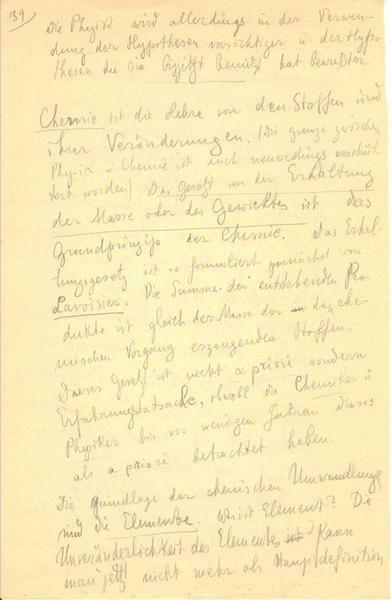 39)
Die Physik wird allerdings in der Verwen-
dung der Hyppothesen vorsichtiger u der Hypo-
thesen die sie benützt hat bewußter.
Chemie ist die Lehre von den Stoffen und
ihrer Veränderungen. (Die grenze zwischen
Physik u Chemie ist auch neuerdings erschüt-
tert worden) Das Gesetz von der Erhaltung
der Masse oder des Gewichtes ist das
Grundprinzip der Chemie. Das Erhal-
tungsgesetz ist so formuliert zunächst von
Lavoisier. Die Summe der entstehenden Pro
dukte ist gleich der Masse der den che-
mischen Vorgang erzeugenden Stoffen.
Dieses Gesetz ist nicht a priori sondern
Erfahrungstatsache, obwohl die Chemiker u
Physiker bis vor wenigen Jahren dieses
als a priori betrachtet haben.
Die Grundlage der chemischen Umwandlung
sind die Elemente. Was ist Element? Die
Unveränderlichkeit des Elementes ist kann
man jetzt nicht mehr als Hauptdefinition